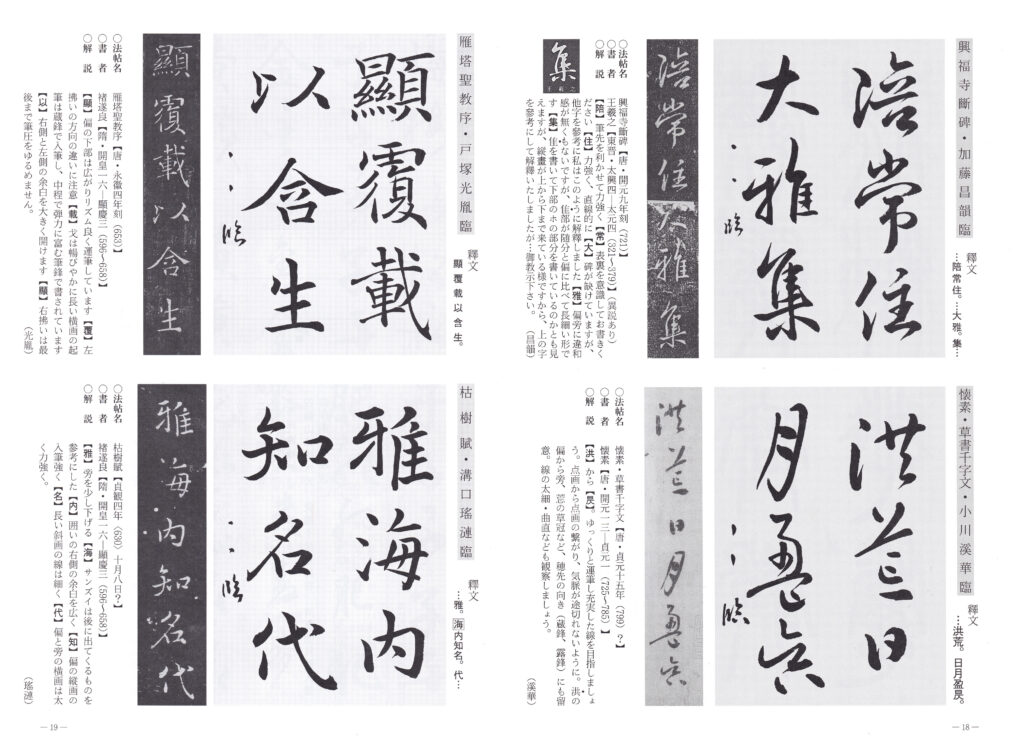 興福寺斷碑・加藤昌韻臨
釋文
…陪常住。…大雅。集…
陪常住
大雅集
臨
陪常住大雅集
集
王羲之
○法帖名 興福寺断碑【唐・開元九年刻(721)】
○書者 王羲之【東晋・太興四―太元四(321~379)】(異説あり)
○解説 【陪】筆先を利かせて力強く【常】表裏を意識してお書きく
ださい【住】力強く、直線的に【大】碑が缺けていますが、
他字を参考に私はこのように解釋しました【雅】偏旁に違和
感が無くもないですが、隹部が随分と偏に比べて長細い形で
す【集】隹を書いて下部のホの部分を書いているのかとも見
えますが、縦畫が上から下まで来ている様ですから、上の字
を参考にして解釋いたしましたが…御教示下さい。
(昌韻)
懐素・草書千字文・小川溪華臨
釋文
…洪荒。日月盈昃。
洪荒日
月盈昃
臨
洪荒日月盈昃
○法帖名 懐素・草書千字文【唐・貞元十五年(799)?】
○書者 懐素【唐・開元一三―貞元一(725~785)】
○解説 【洪】から【昃】。ゆっくりと運筆し充実した線を目指しましょ
う。点画から点画の繋がり、気脈が途切れないように。洪の
偏から旁、荒の草冠など、穂先の向き(蔵鋒、露鋒)にも留
意。線の太細・曲直なども観察しましょう。
(溪華)
― 18 ―
雁塔聖教序・戸塚光胤臨
釋文
顯覆載以含生。
顯覆載
以含生
臨
顯覆載以含生
○法帖名 雁塔聖教序【唐・永徽四年刻(653)】
○書者 褚遂良【隋・開皇一六―顕慶三(596~658)】
○解説 【顯】偏の下部は広がりリズム良く運筆しています【覆】左
拂いの方向の違いに注意【載】戈は暢びやかに長い横画の起
筆は蔵鋒で入筆し、中程で弾力に富む筆鋒で書されています
【以】右側と左側の余白を大きく開けます【顯】右拂いは最
後まで筆圧をゆるめません。
(光胤)
枯樹賦・溝口瑤漣臨
釋文
…雅。海内知名。代…
雅海内
知名代
臨
雅海内知名代
○法帖名 枯樹賦【貞観四年(630)十月八日?】
○書者 褚遂良【隋・開皇一六―顕慶三(596~658)】
○解説 【雅】旁を少し下げる【海】サンズイは後に出てくるものを
参考にした【内】囲いの右側の余白を広く【知】偏の縦画の
入筆強く【名】長い斜画の線は細く【代】偏と旁の横画は太
く力強く。
(瑤漣)
― 19 ―